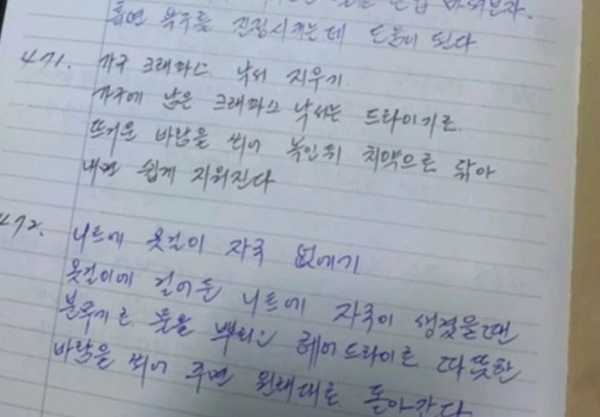 흡연 욕구를 진정시키는데 도움이 된다
471. 가구 크레파스 낙서 지우기
가구에 남은 크레파스 낙서는 드라이기로
뜨거운 바람을 쐬어 녹인뒤 치약으로 닦아
내면 쉽게 지워진다
472. 니트에 옷걸이 자국 없애기
옷걸이에 걸어둔 니트에 자국이 생겼을땐
분무기로 물을 뿌리고 헤어드라이로 따뜻한
바람을 쐬어 주면 원래대로 돌아간다